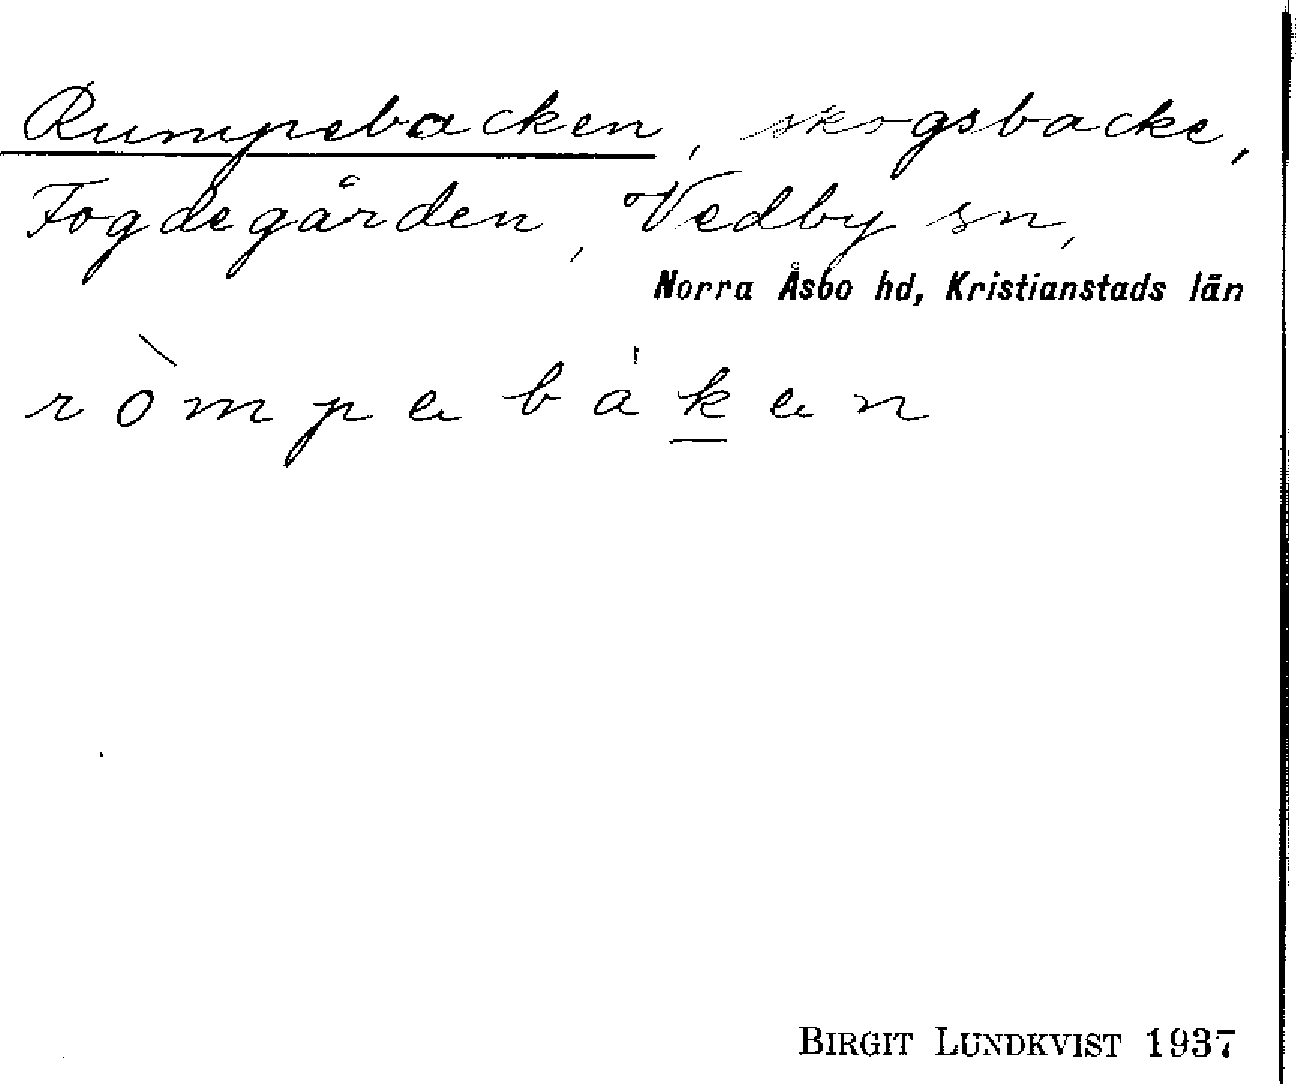 Rumpebacken, skogsbacke,
Fogdegården, Vedby sn,
Norra Åsbo hd, Kristianstads län
ròmpebak̲en
BIRGIT LUNDKVIST 1937